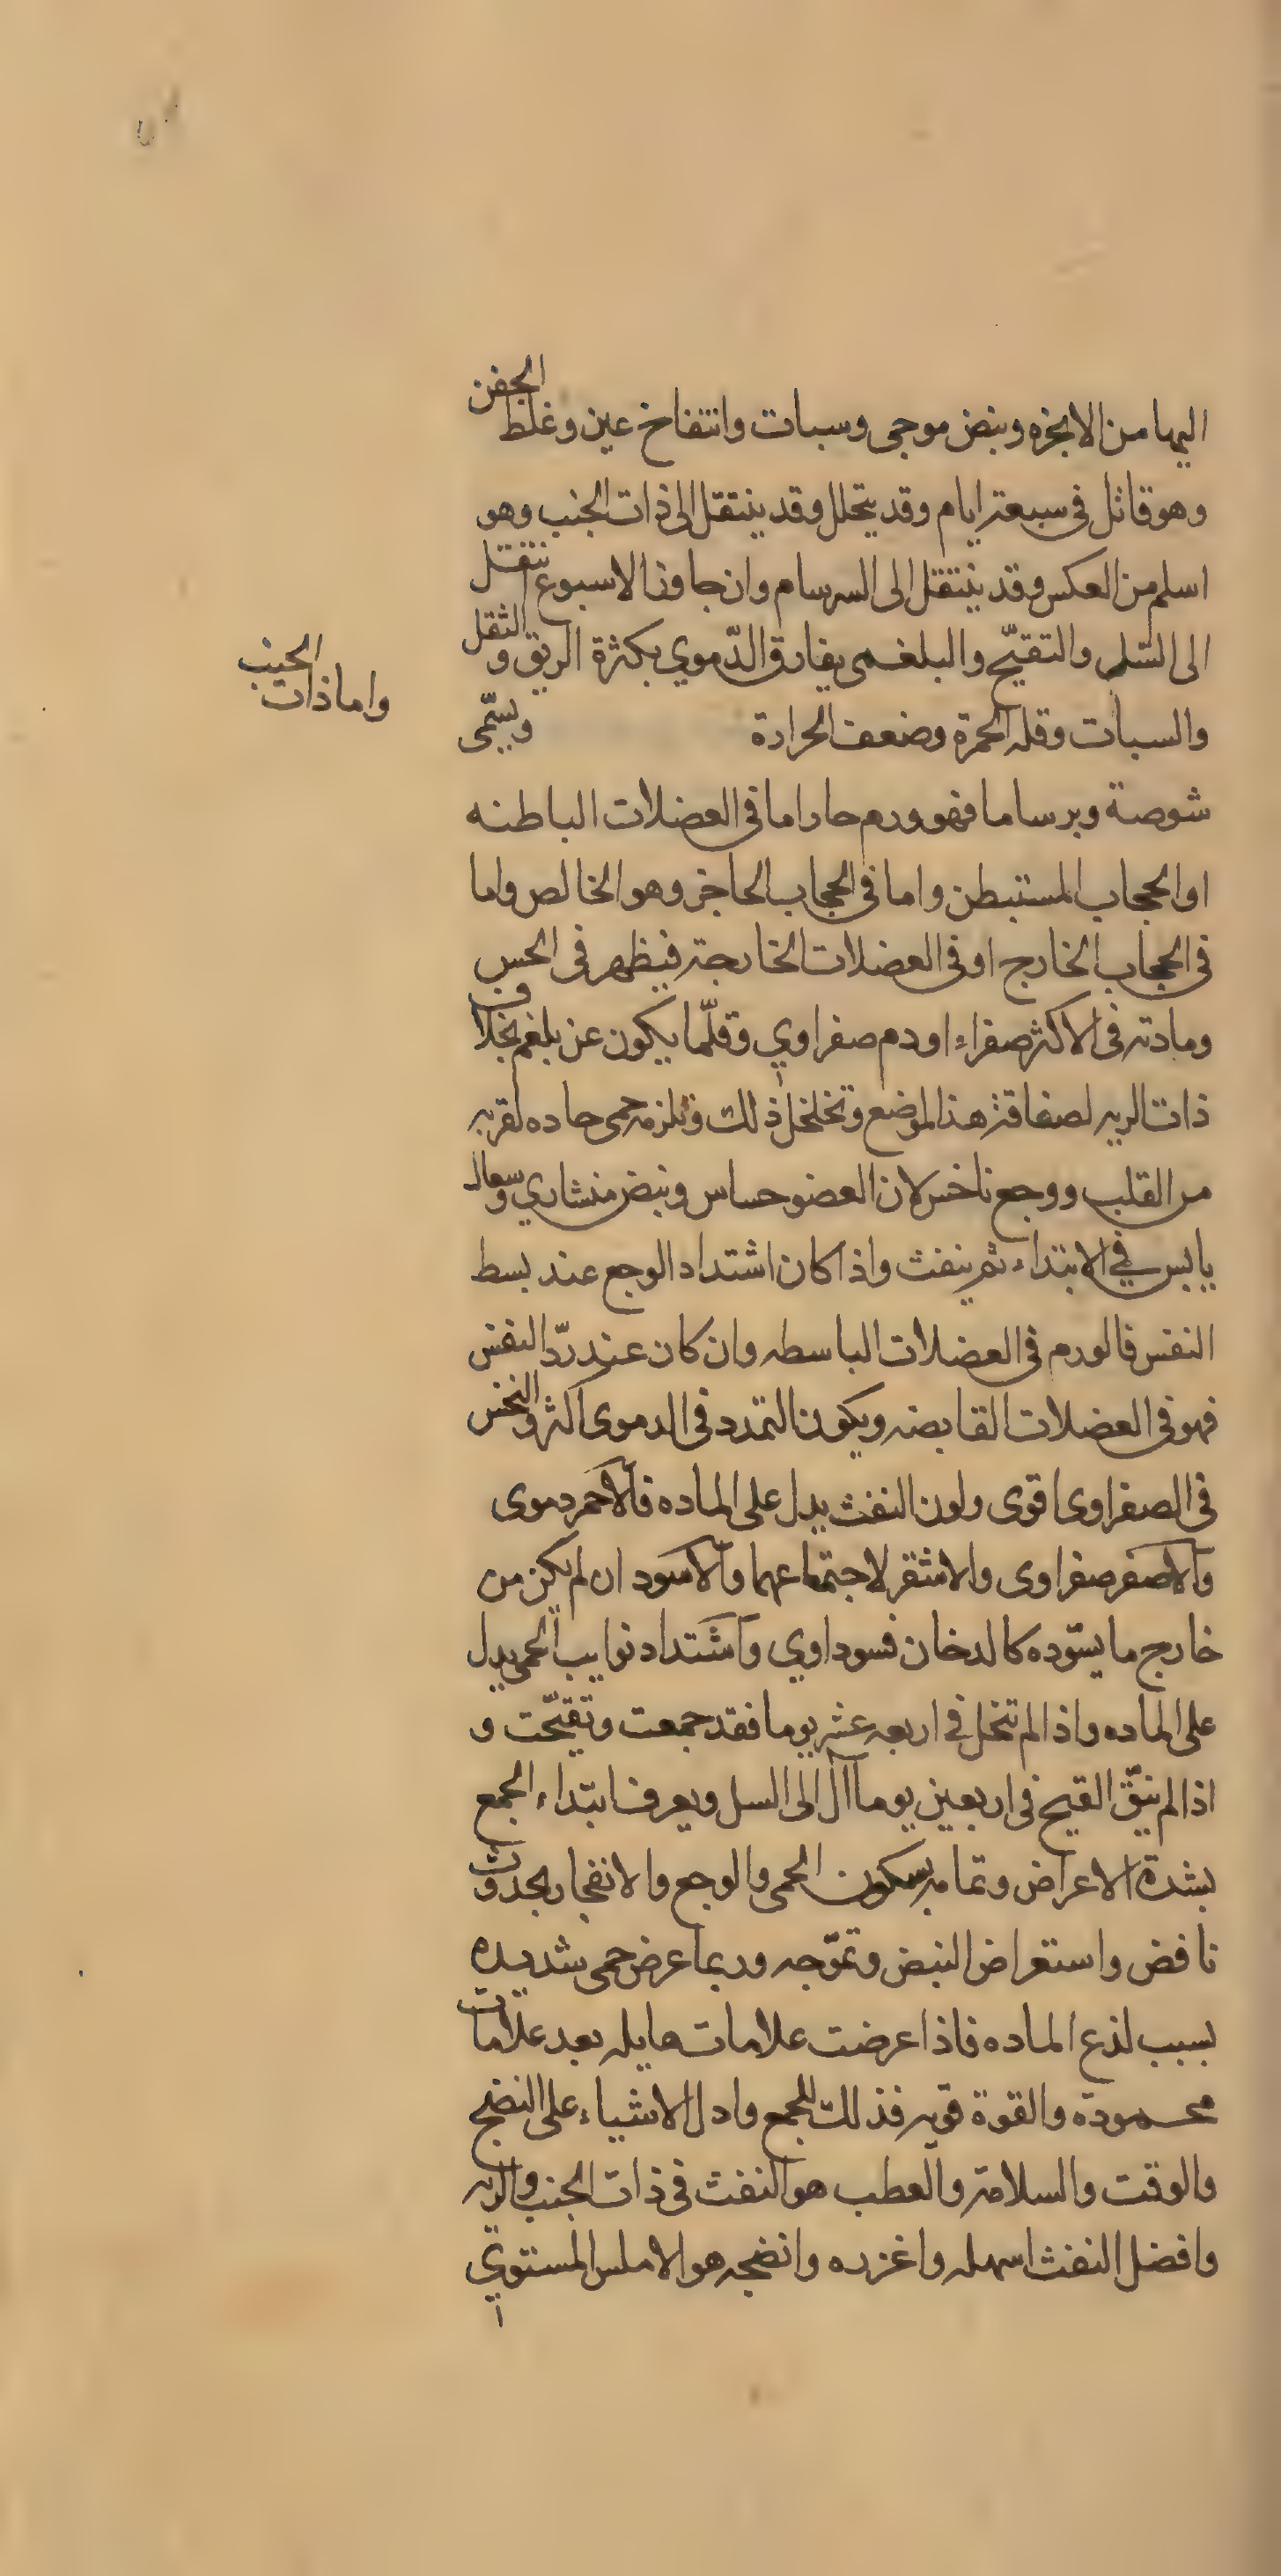 اليها من الابخره ونبض موجى وسبات وانتفاخ عين وغلظ الجفن
وهو قاتل فى سبعة ايام وقد يتحلل وقد ينتقل الى ذات الجنب وهو
اسلم من العكس وقد ينتقل الى السرسام وان جاوز الاسبوع انتقل
الى السل والتقيّح والبلغمى يفارق الدّموي بكثرة الريق والثقل
والسبات وقله الحمرة وضعف الحرارة ويسمّى
واما ذات الجنب
شوصة وبرساما فهو ورم حار اما فى العضلات الباطنه
او الحجاب المستبطن واما فى الحجاب الحاجز وهو الخالص واما
فى الحجاب الخارج او فى العضلات الخارجة فيظهر فى الحس
ومادته فى الاكثر صفراء او دم صفراوي وقلّما يكون عن بلغم بخلاف
ذات الريه لصفاقة هذا الموضع وتخلخل ذلك وتلزمه حمى حاده لقربه
من القلب ووجع ناخس لان العضو حساس ونبض منشاري وسعال
يابس في الابتداء ثم ينفث واذا كان اشتداد الوجع عند بسط
النفس فالورم فى العضلات الباسطه وان كان عند ردّ النفس
فهو فى العضلات القابضه ويكون التمدد فى الدموى اكثر والنخس
فى الصفراوى اقوى ولون النفث يدل على الماده فالاحمر دموى
والاصفر صفراوى والاشقر لاجتماعهما والاسود ان لم يكن من
خارج ما يسّوده كالدخان فسوداوي واشتداد نوايب الحمى يدل
على الماده واذا لم تنحل فى اربعه عشر يوما فقد جمعت وتقيّحت و
اذا لم ينقّ القيح فى اربعين يوما آل الى السل ويعرف ابتداء الجمع
بشدة الاعراض وتمامه بسكون الحمى والوجع والانفجار بحدوث
نافض واستعراض النبض وتموّجه وربما عرض حمى شديده
بسبب لذع الماده فاذا عرضت علامات هايله بعد علامات
محمودة والقوة قويه فذلك للجمع وادل الاشياء على النضج
والوقت والسلامة والعطب هو النفث فى ذات الجنب والريه
وافضل النفث اسهله واغزره وانضجه هو الاملس المستوي